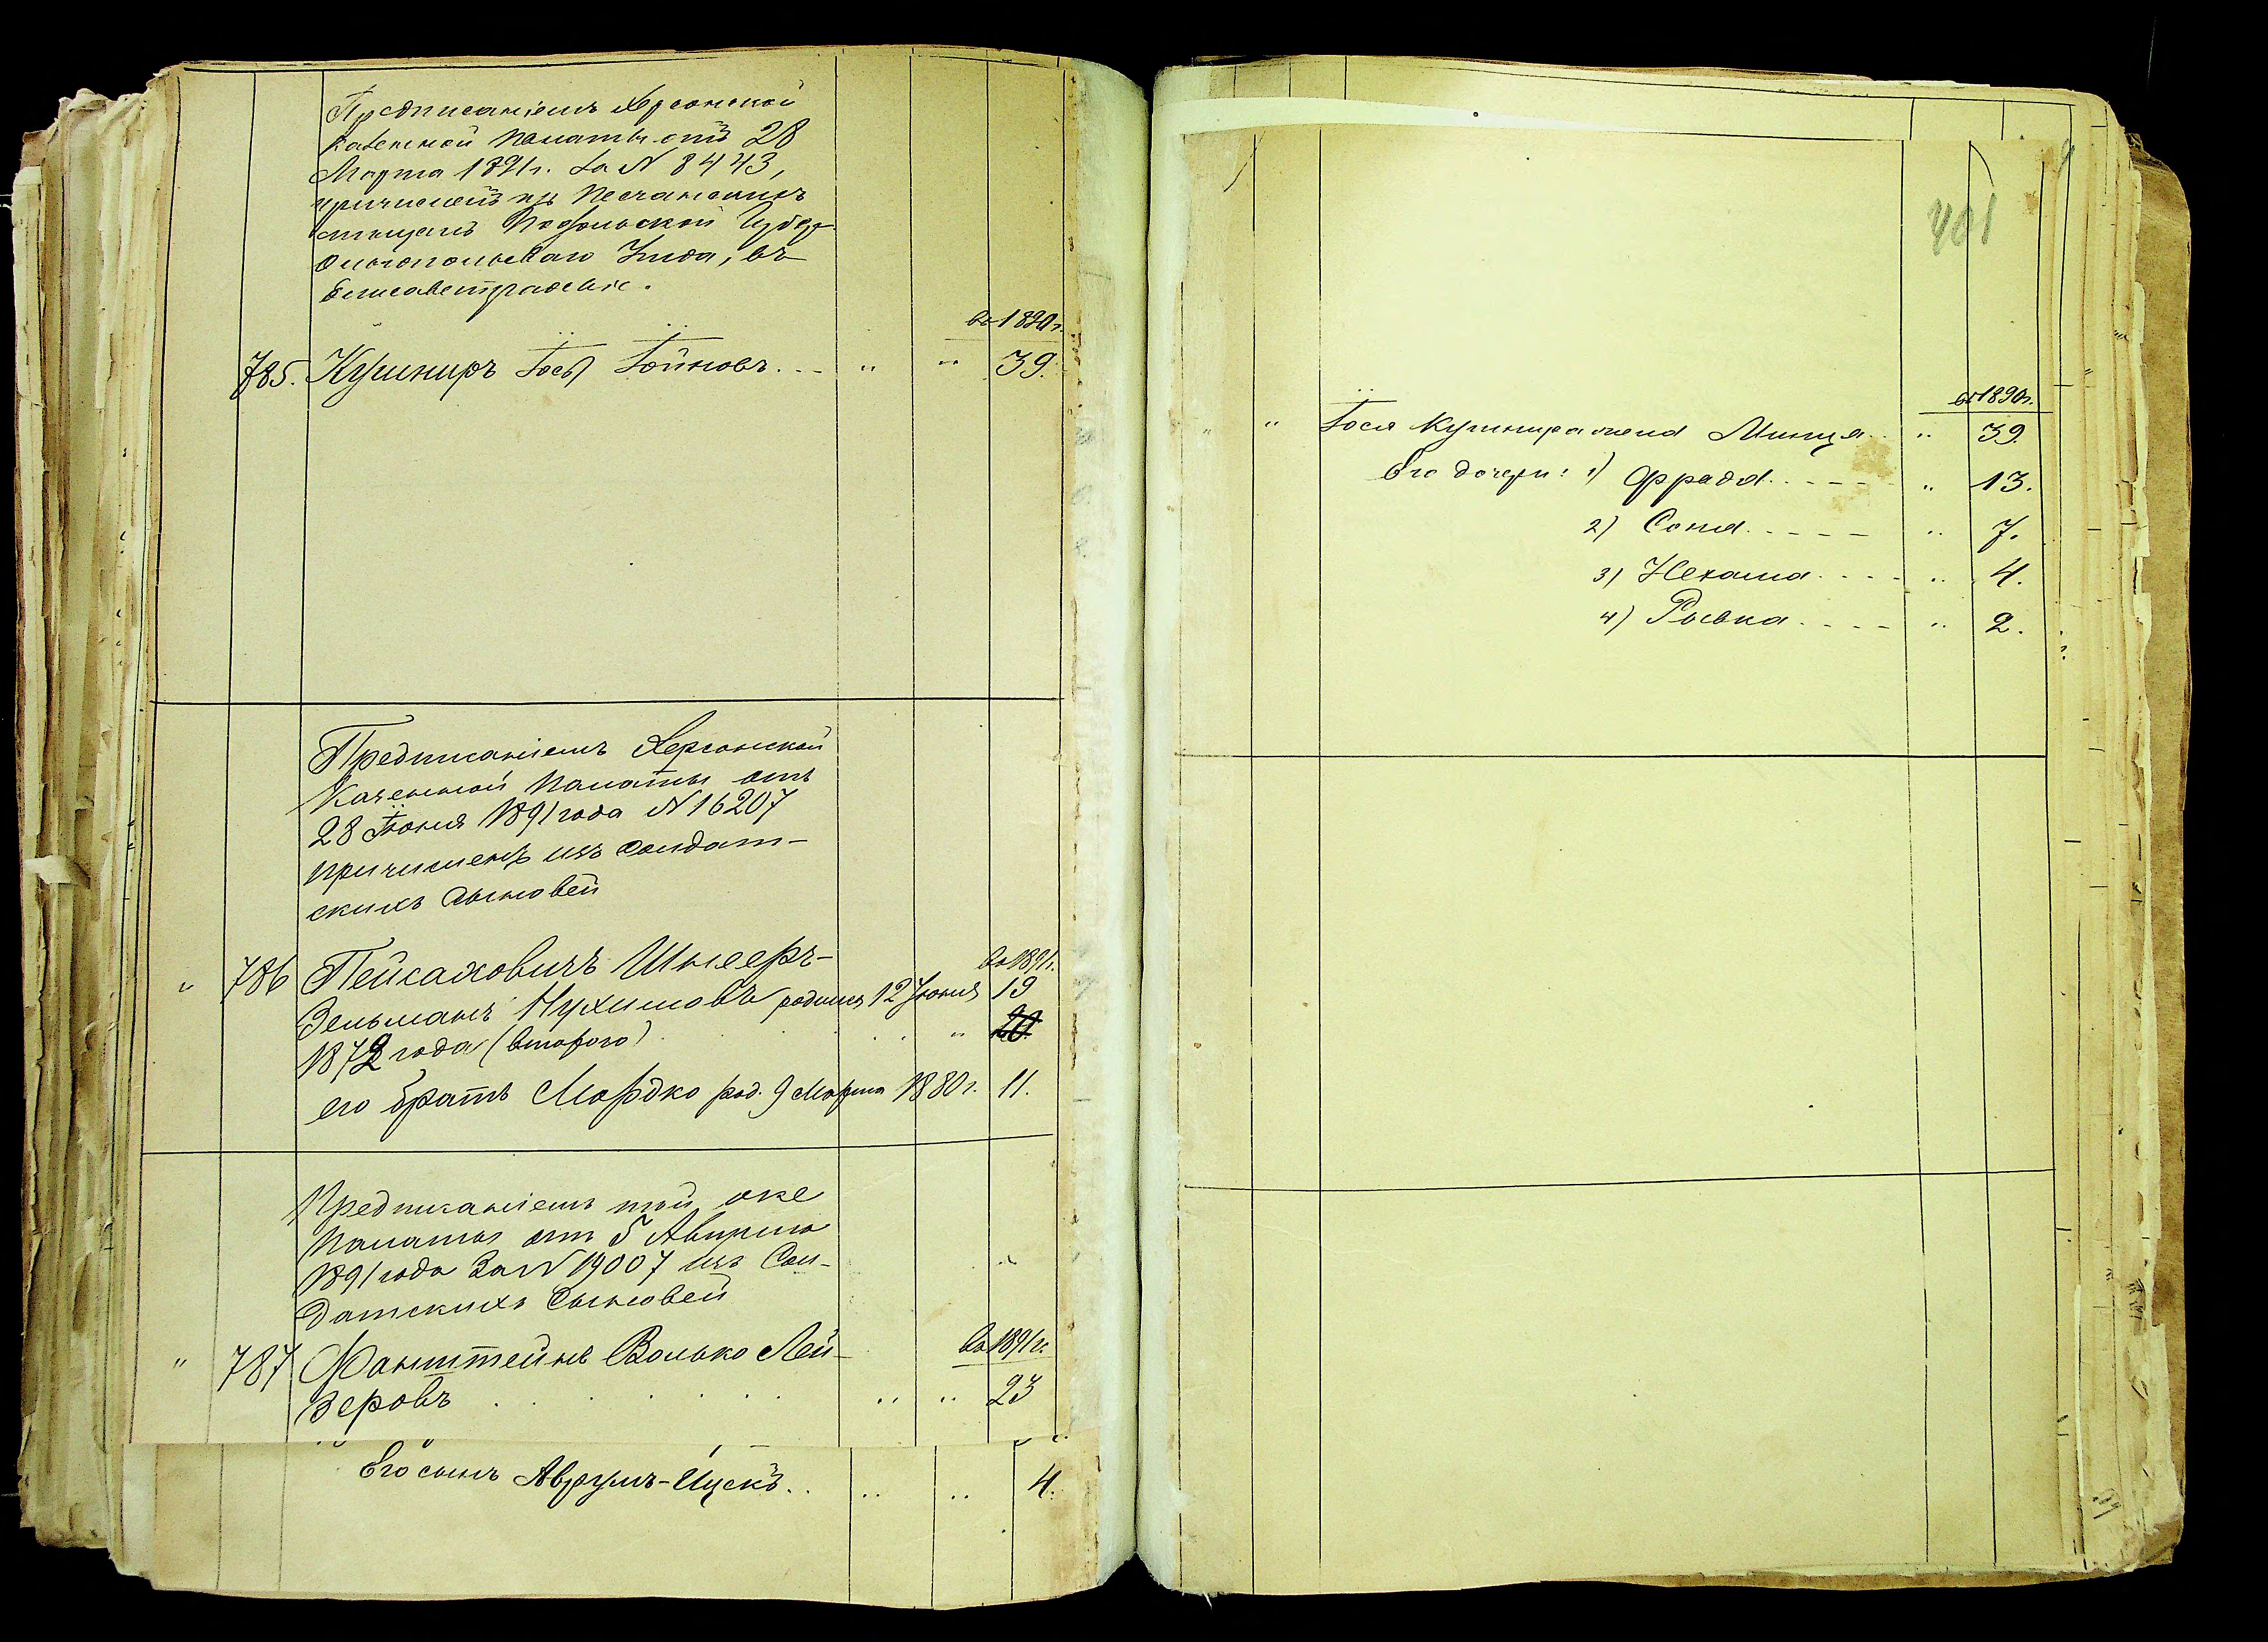 Предписаніемъ Херсонской
Казенной Палаты отъ 28
Марта 1891г. за N 8443,
причисленъ изъ Песчанскихъ
мещанъ Подольской Губер.
Ольгопольскаго Уезда, въ
Елисаветградскіе.
въ 1890г.
785. Кушниръ Іось Іойновъ. . . " " 39.
Предписаніемъ Херсонской
Казенной Палаты отъ
28 Іюня 1891 года N 16207
причисленъ изъ солдат-
скихъ сыновей
въ 1891г.
" 786 Пейсаховичъ Шнееръ-
Зельманъ Нухимовъ родился 12 Іюня 19
1872 года (второго) . . . " 20
его братъ Мордко род. 9 Марта 1880г. 11.
Предписаніемъ той же
Палаты отъ 5 Августа
1891 года за N 19007 изъ Сол-
датскихъ сыновей
въ 1891г.
" 787 Фанштейнъ Волько Лей-
зеровъ . . . . . . " " 23
Его сынъ Аврумъ-Ицекъ. . " " 4.
401
въ 1890г.
" " Іося Кушнира жена Минця. . " 39.
Его дочери: 1) Фрада. . . . . " 13.
2) Соня. . . . . " 7.
3) Нехама. . . . " 4.
4) Рывка. . . . . " 2.